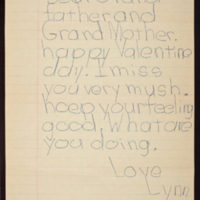 father and
Grand Mother.
happy Valentine
day. I miss
you very mush.
hoep your feeling
good. What are
you doing.
Love
Lynn